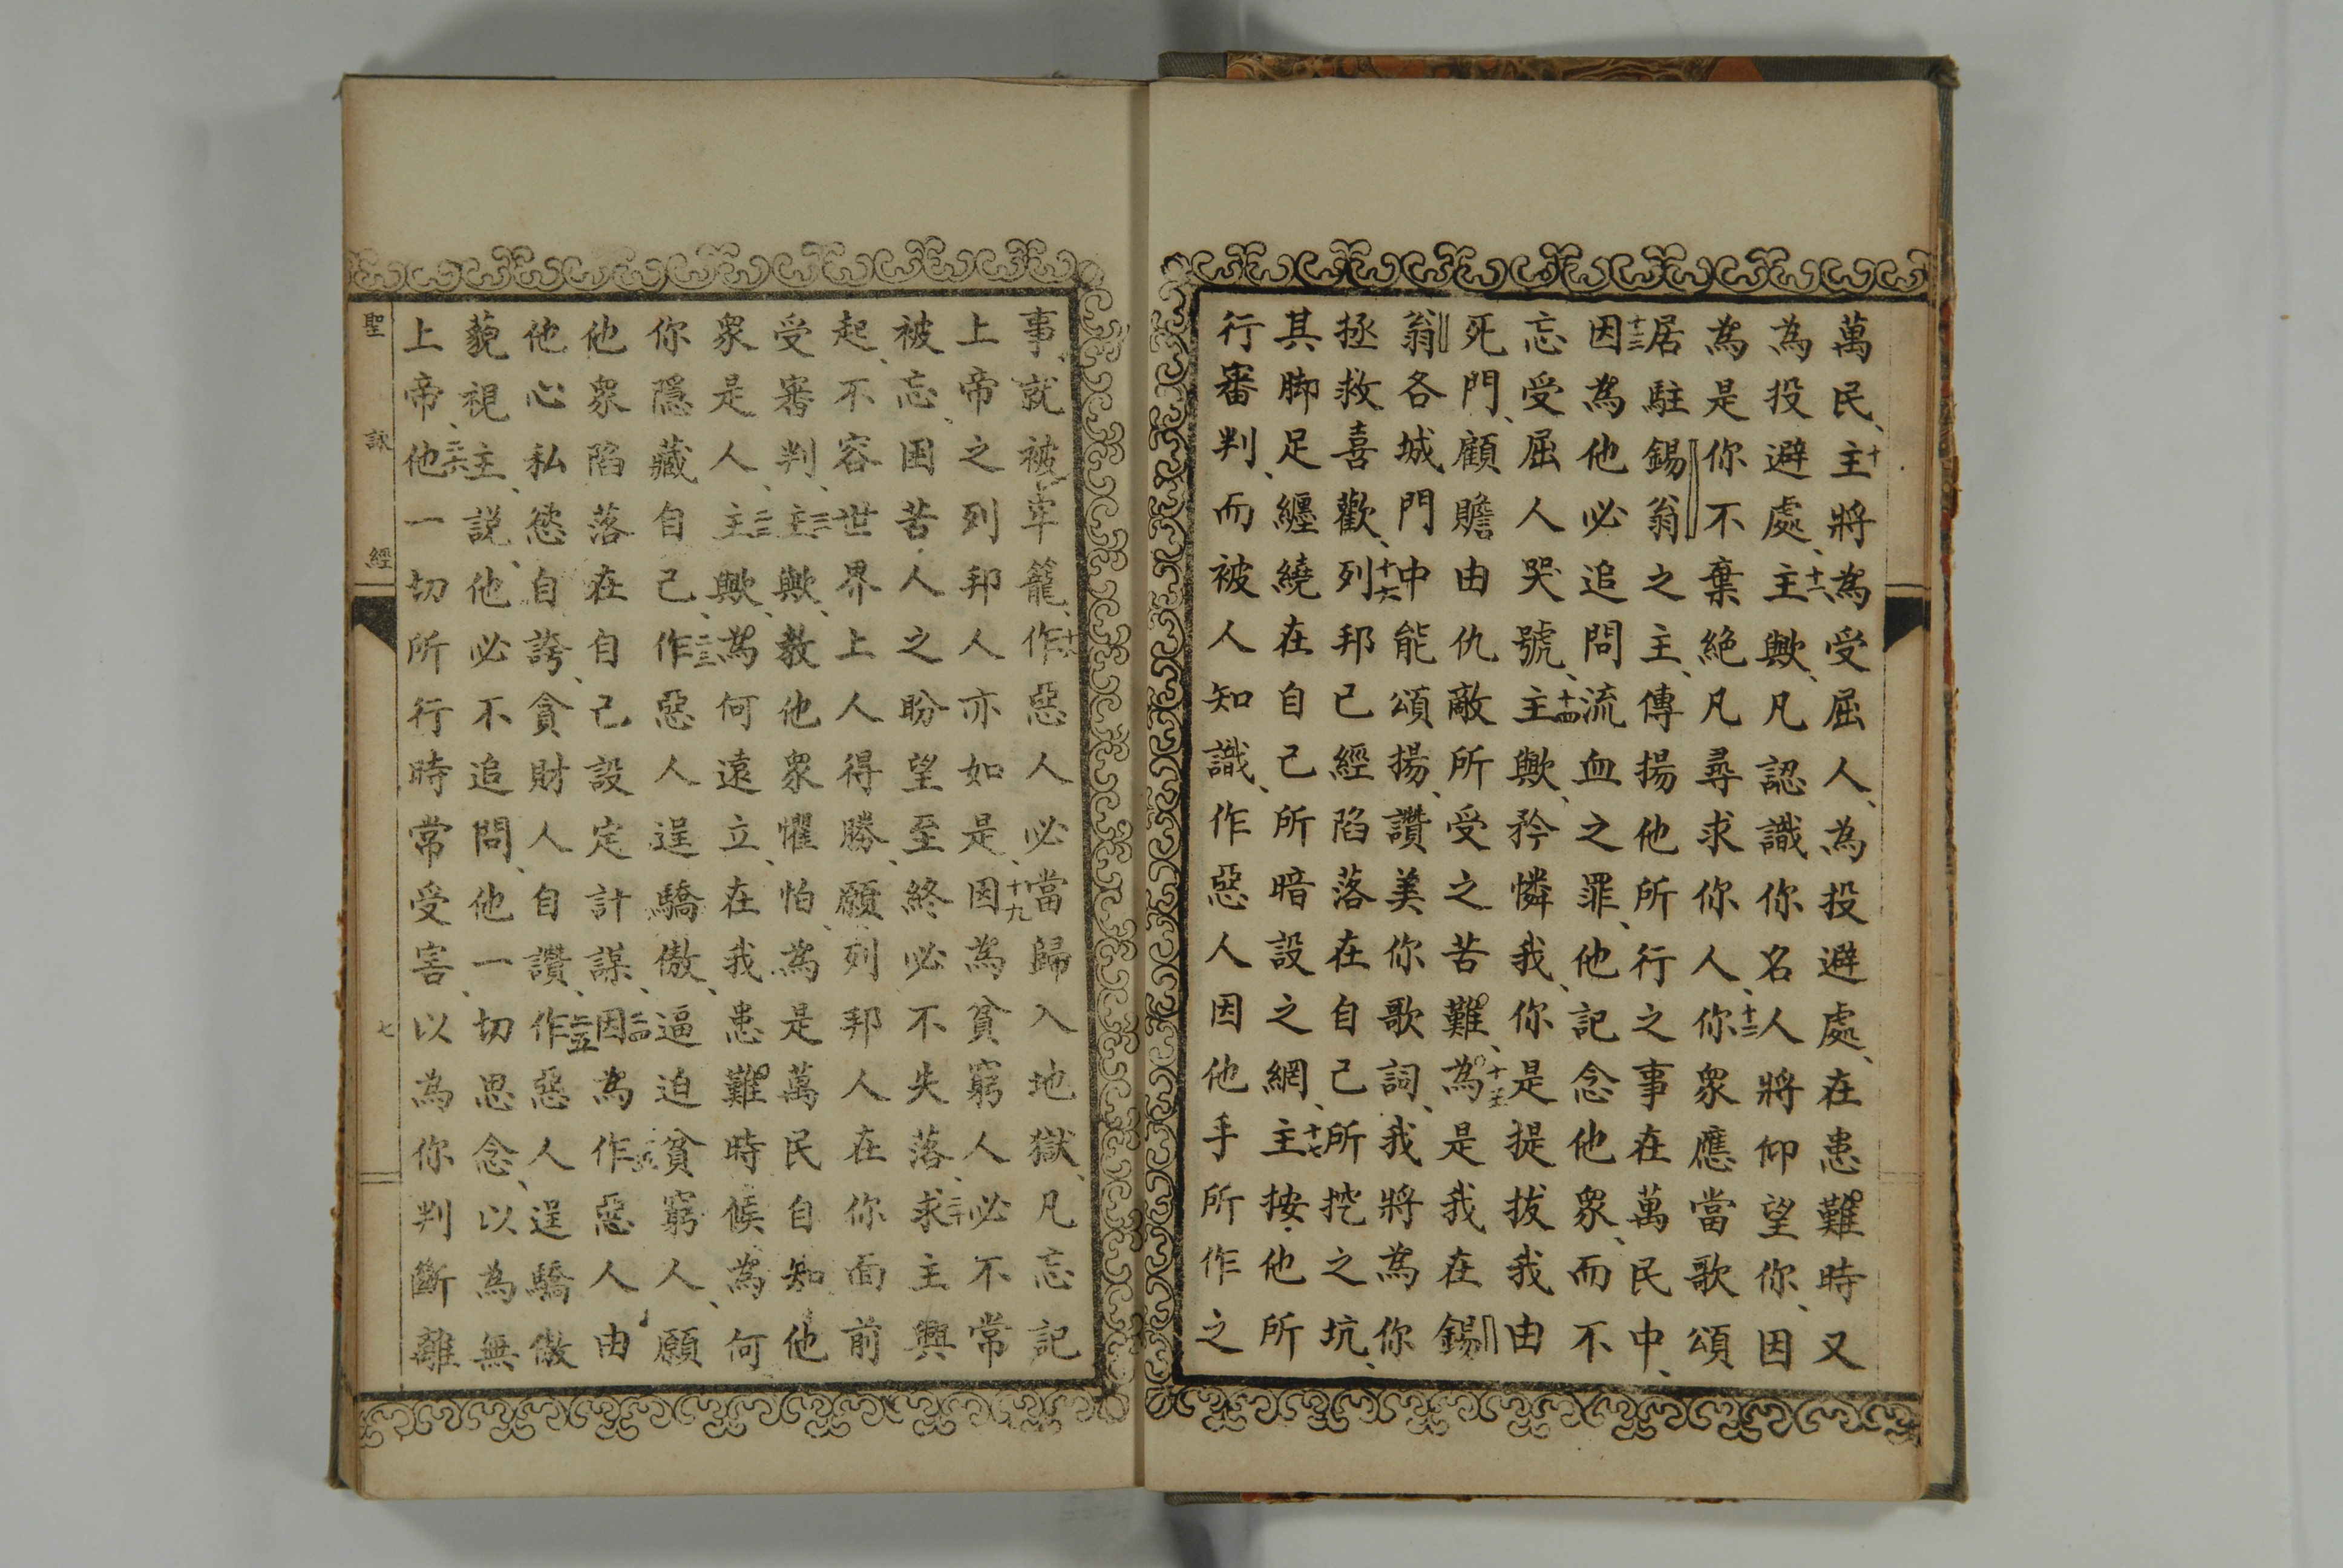 萬民、十主將為受屈人、為投避處、在患難時又
為投避處、十一主歟、凡認識你名人將仰望你、因
為是你不棄絕凡尋求你人、十二你眾應當歌頌
居駐錫翁之主、傳揚他所行之事在萬民中、
十三因為他必追問流血之罪、他記念他眾、而不
忘受屈人哭號、十四主歟、矜憐我、你是提拔我由
死門、顧瞻由仇敵所受之苦難、十五為是我在錫
翁各城門中能頌揚、讚美你歌詞、我將為你
拯救喜歡、十六列邦已經陷落在自己所挖之坑、
其脚足纏繞在自己所暗設之網、十七主按他所
行審判、而被人知識、作惡人因他手所作之
事、就被牢籠、十八作惡人必當歸入地獄、凡忘記
上帝之列邦人亦如是、十九因為貧窮人必不常
被忘、困苦人之盼望至終必不失落、二十求主興
起、不容世界上人得勝、願列邦人在你面前
受審判、二一主歟、教他眾懼怕、為是萬民自知他
眾是人、二二主歟、為何遠立、在我患難時候、為何
你隱藏自己、二三作惡人逞驕傲、逼迫貧窮人、願
他眾陷落在自己設定計謀、二四因為作惡人由
他心私慾自誇、貪財人自讚、二五作惡人逞驕傲
藐視主、說、他必不追問、他一切思念、以為無
上帝、二六他一切所行時常受害、以為你判斷離
聖詠經 七